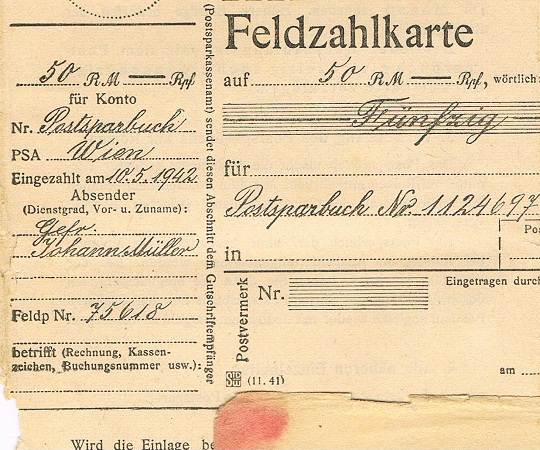 50 RM — Rpf
für Konto
Nr. Postsparbuch
PSA Wien
Eingezahlt am 10.5.1942
Absender
(Dienstgrad, Vor- u. Zuname):
Gefr.
Johann Müller
Feldp Nr. 75618
betrifft (Rechnung, Kassen-
zeichen, Buchungsnummer usw.):
(Postsparkassenamt) sendet diesen Abschnitt dem Gutschriftempfänger
Feldzahlkarte
auf 50 RM — Rpf, wörtlich:
Fünfzig
für
Postsparbuch Nr. 1124697
in
Po
Postvermerk
Nr.
Eingetragen durch
am
(11. 41)
Wird die Einlage be